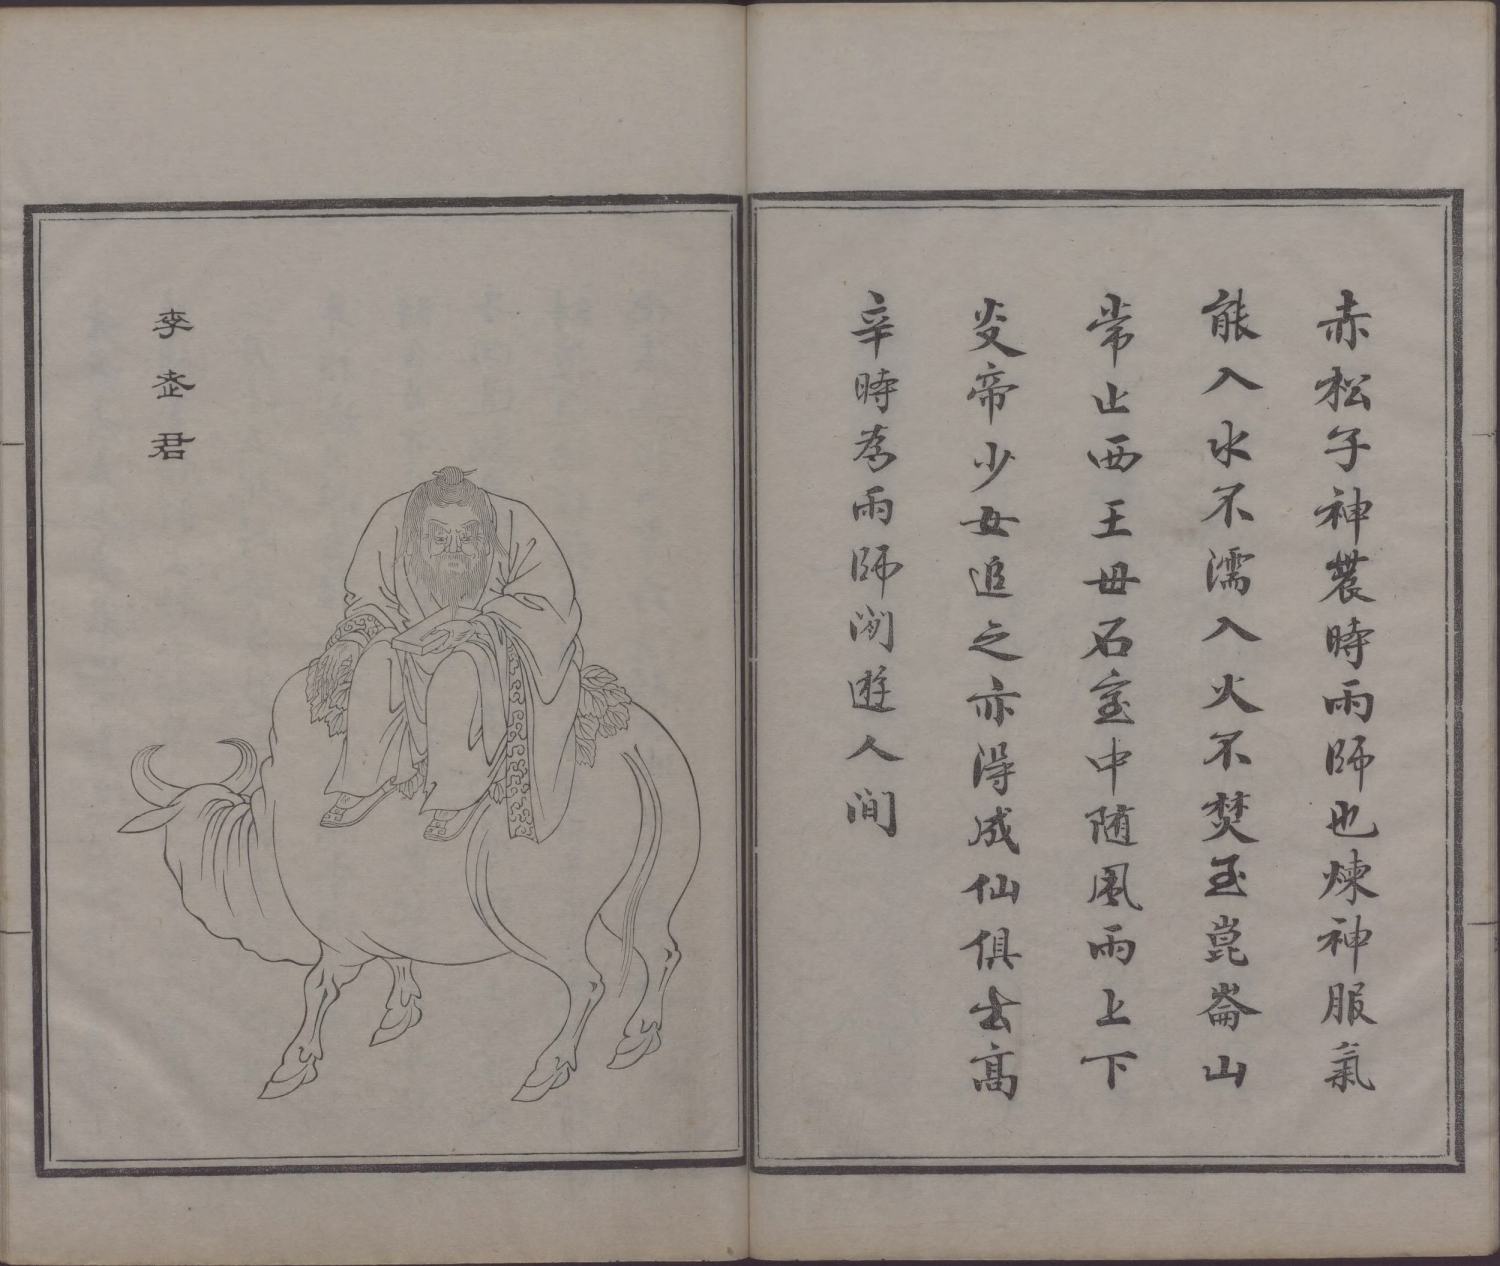 赤松子神農時雨師也煉神服氣
能入水不濡入火不焚至崑崙山
常止西王母石室中随風雨上下
炎帝少女追之亦得成仙俱去高
辛時為雨師閒遊人間
李老君